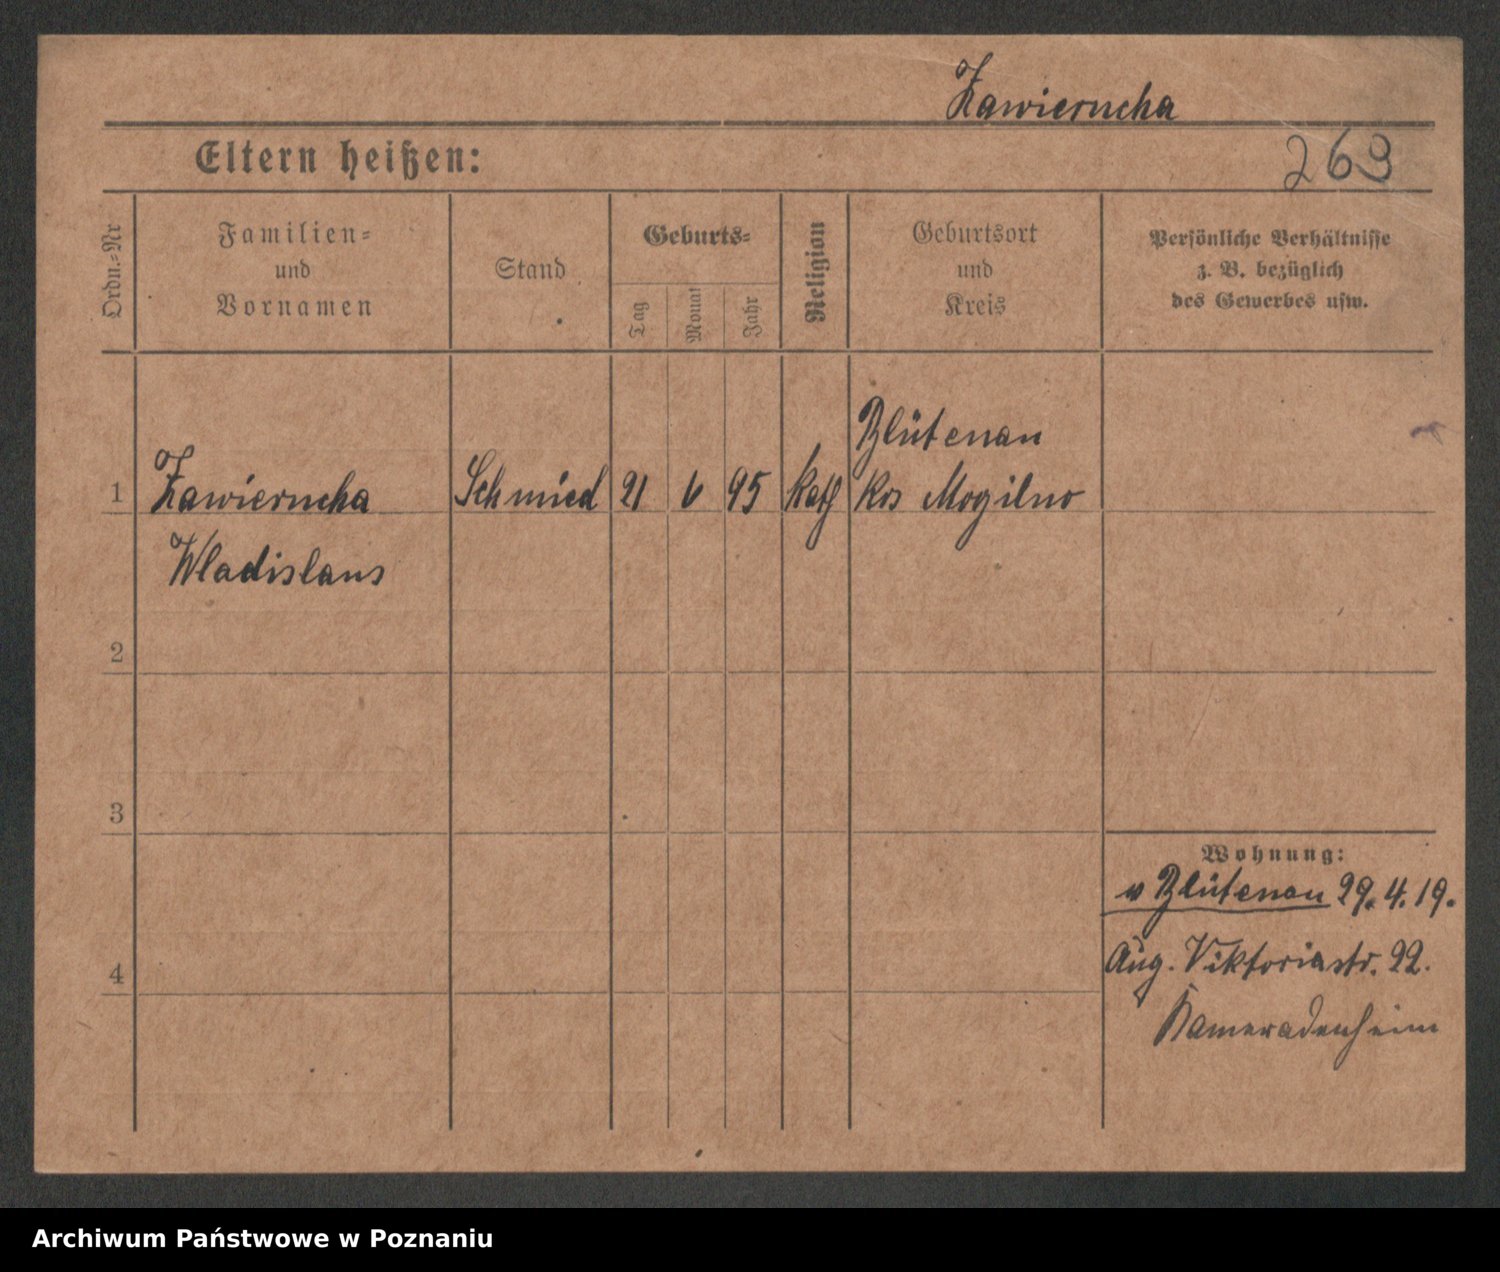 Zawierucha
Eltern heißen:
263
Ordn.-Nr
Familien-
und
Vornamen
Stand
Geburts-
Tag
Monat
Jahr
Religion
Geburtsort
und
Kreis
Persönliche Verhältnisse
z. B. bezüglich
des Gewerbes usw.
1 Zawierucha Schmied 21 6 95 kath Blütenau
Krs Mogilno
Wladislaus
2
3
4
Wohnung:
v Blütenau 29.4.19.
Aug. Viktoriastr. 22.
Kameradenheim
Archiwum Państwowe w Poznaniu